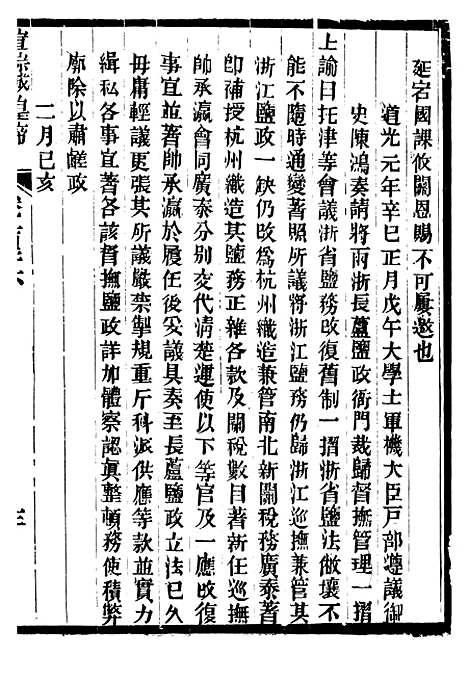 延宕國課攸關恩賜不可屢邀也
道光元年辛巳正月戊午大學士軍機大臣戶部遵議御
史陳鴻奏請將兩浙長蘆鹽政衙門裁歸督撫管理一摺
上諭曰托津等會議浙省鹽務改復舊制一摺浙省鹽法敝壞不
能不隨時通變著照所議將浙江鹽務仍歸浙江巡撫兼管其
浙江鹽政一缺仍改為杭州織造兼管南北新關稅務廣泰著
卽補授杭州織造其鹽務正雜各款及關稅數目著新任巡撫
帥承瀛會同廣泰分別交代清楚運使以下等官及一應改復
事宜並著帥承瀛於履任後妥議具奏至長蘆鹽政立法已久
毋庸輕議更張其所議嚴禁掣規重斤科派供應等款並實力
緝私各事宜著各該督撫鹽政詳加體察認眞整頓務使積弊
廓除以肅鹾政
二月己亥
宣宗成皇帝
三